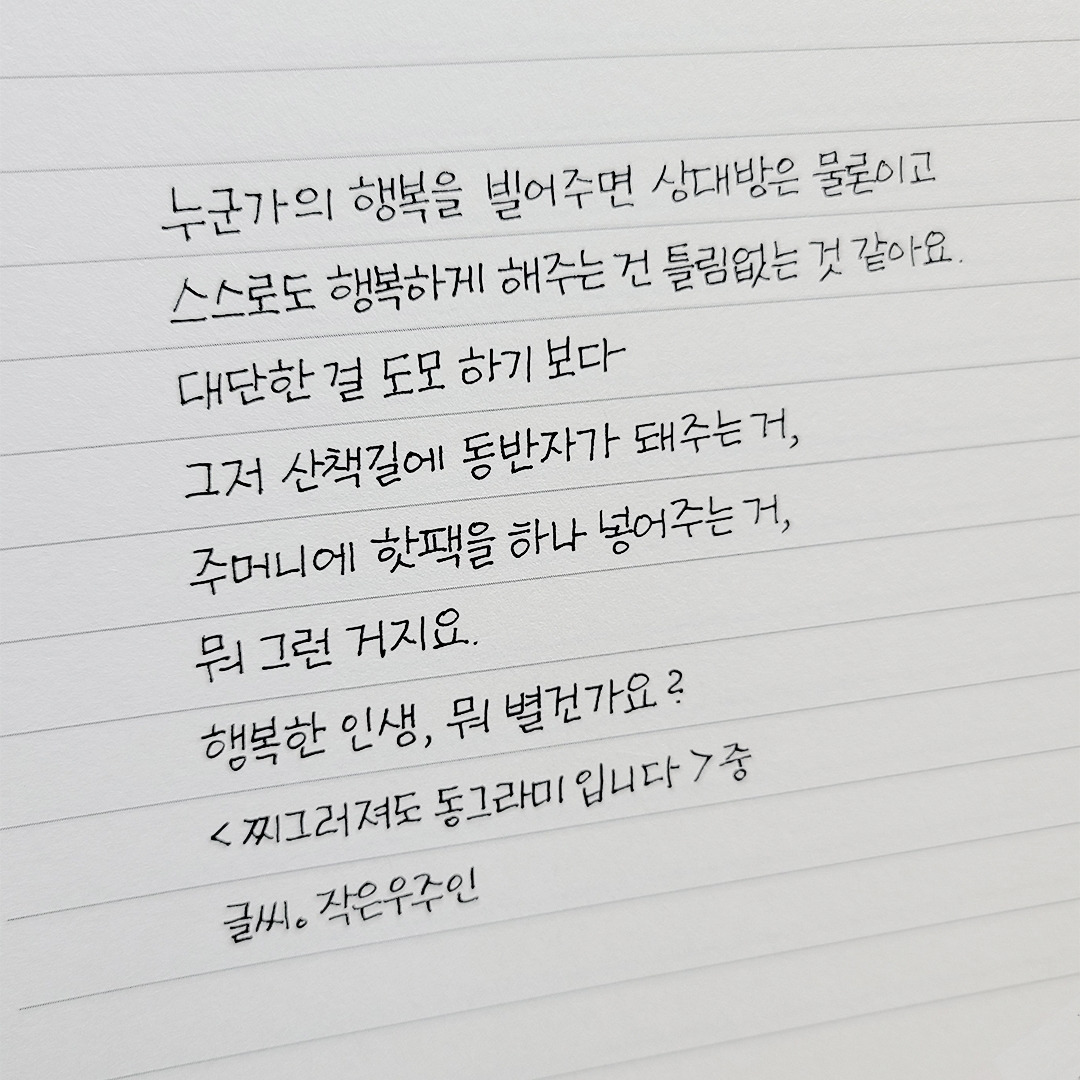 누군가의 행복을 빌어주면 상대방은 물론이고
스스로도 행복하게 해주는 건 틀림없는 것 같아요.
대단한 걸 도모 하기 보다
그저 산책길에 동반자가 돼주는 거,
주머니에 핫팩을 하나 넣어주는 거,
뭐 그런 거지요.
행복한 인생, 뭐 별건가요?
<찌그러져도 동그라미입니다>중
글씨。작은우주인